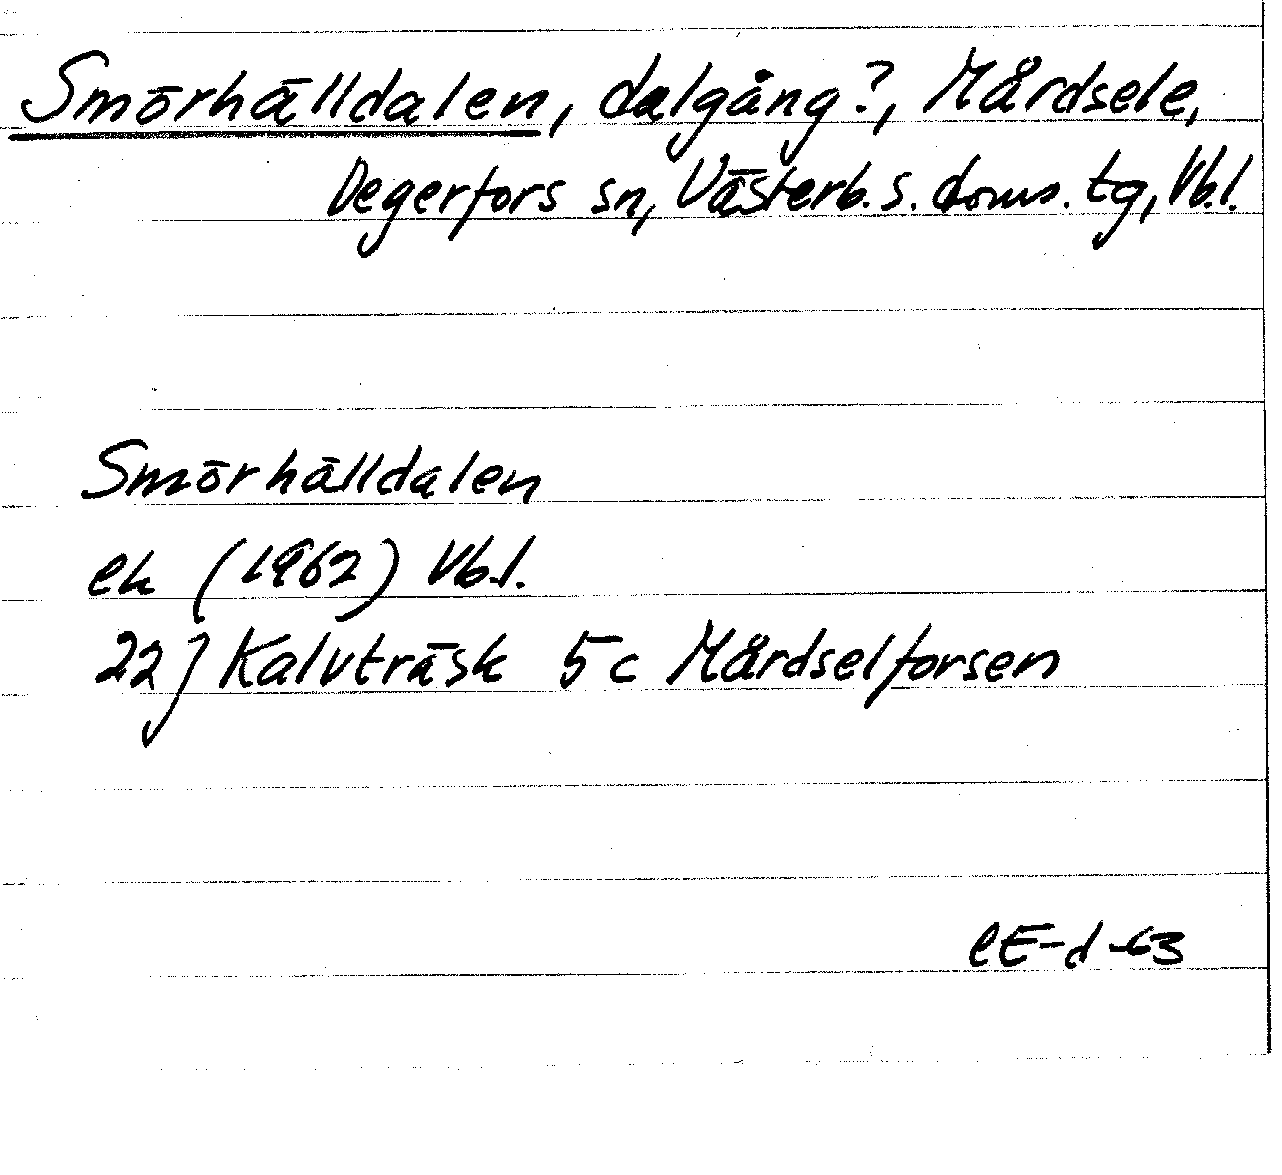 Smörhälldalen, dalgång?, Mårdsele,
Degerfors sn, Västerb. s. doms. tg, Vb.l.
Smörhälldalen
ek (1962) Vb.l.
22J Kalvträsk 5c Mårdselforsen
CE-d-63